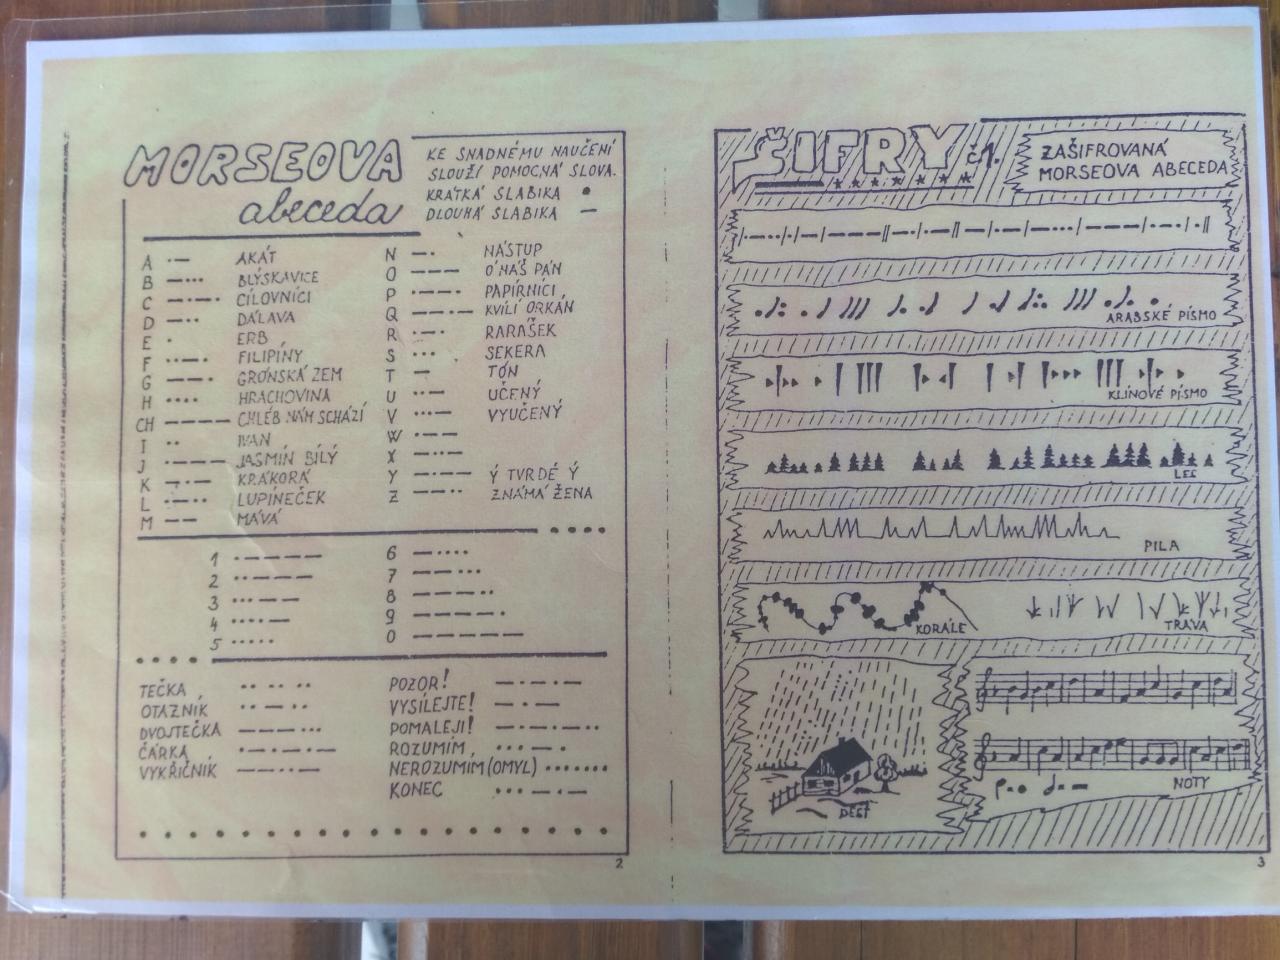 MORSEOVA
abeceda
KE SNADNÉMU NAUČENÍ
SLOUŽÍ POMOCNÁ SLOVA.
KRÁTKÁ SLABIKA •
DLOUHÁ SLABIKA —
A •— AKÁT
B —••• BLÝSKAVICE
C —•—• CÍLOVNÍCI
D —•• DÁLAVA
E • ERB
F ••—• FILIPÍNY
G ——• GRÓNSKÁ ZEM
H •••• HRACHOVINA
CH ———— CHLÉB NÁM SCHÁZÍ
I •• IVAN
J •——— JASMÍN BÍLÝ
K —•— KRÁKORÁ
L •—•• LUPÍNEČEK
M —— MÁVÁ
N —• NÁSTUP
O ——— Ó NÁŠ PÁN
P •——• PAPÍRNÍCI
Q ——•— KVÍLÍ ORKÁN
R •—• RARÁŠEK
S ••• SEKERA
T — TÓN
U ••— UČENÝ
V •••— VYUČENÝ
W •——
X —••—
Y —•—— Ý TVRDÉ Ý
Z ——•• ZNÁMÁ ŽENA
1 •————
2 ••———
3 •••——
4 ••••—
5 •••••
6 —••••
7 ——•••
8 ———••
9 ————•
0 —————
TEČKA •• •• ••
OTAZNÍK ••——••
DVOJTEČKA ———•••
ČÁRKA
VYKŘIČNÍK
POZOR!
VYSÍLEJTE! —•—
POMALEJI!
ROZUMÍM •••—•
NEROZUMÍM (OMYL)
KONEC •••—•—
2
ŠIFRY č1.
ZAŠIFROVANÁ
MORSEOVA ABECEDA
ARABSKÉ PÍSMO
KLÍNOVÉ PÍSMO
LES
PILA
KORÁLE
TRÁVA
DÉŠŤ
NOTY
3